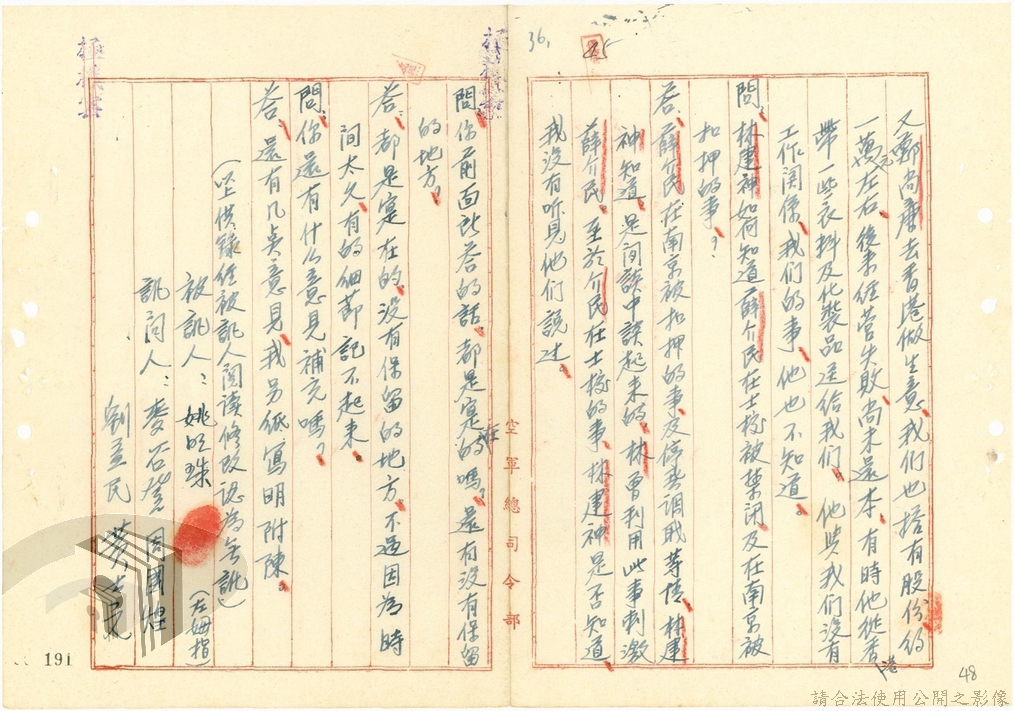 36,
45
又鄭尚康去香港做生意,我們也搭有股份約
一萬元左右,後來經營失敗尚未還本,有時他從香港
帶一些衣料及化裝品送給我們,他與我們沒有
工作関係,我們的事,他也不知道。
問:林建神如何知道薛介民在士校被禁訊,及在南京被
扣押的事?
答:薛介民在南京被扣押的事,及停飛調職等情,林建
神知道,是间談中談起来的,林曾利用此事刺激
薛介民,至於介民在士校的事,林建神是否知道,
我没有听見他們説过。
空軍總司令部
問:你前面所答的話,都是実在的嗎?還有没有保留
的地方?
答:都是実在的,没有保留的地方,不過因為時
间太久,有的细節記不起来。
問:你還有什么意見補充嗎?
答:還有几点意見,我另纸寫明附陳。
(以上供錄经被訊人阅读修改認為無訛)
被訊人:姚明珠
(左姆指)
訊问人:
191
48
請合法使用公開之影像